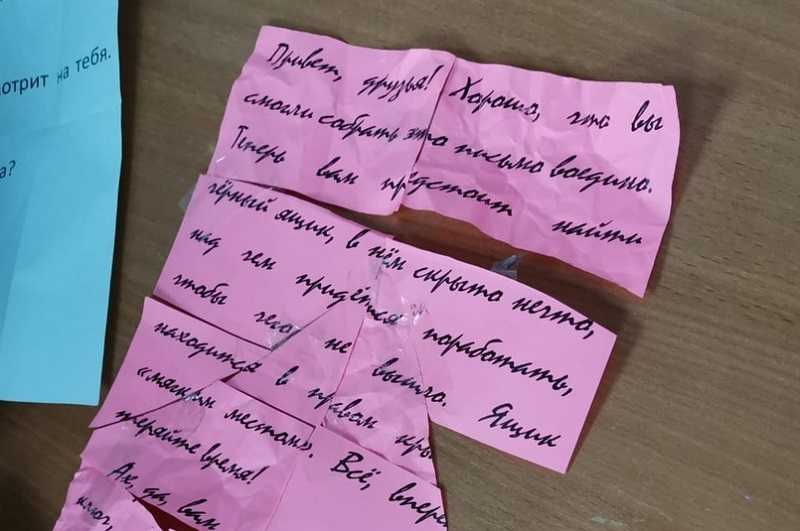 отрит на тебя.
а?
Привет, друзья! Хорошо, что вы
смогли собрать это письмо воедино.
Теперь вам предстоит найти
чёрный ящик, в нём скрыто нечто,
над чем придётся поработать,
чтобы чего не вышло. Ящик
находится в правом кры
«мягким местом». Всё, впере
теряйте время!
Ах, да, вам
ключ,